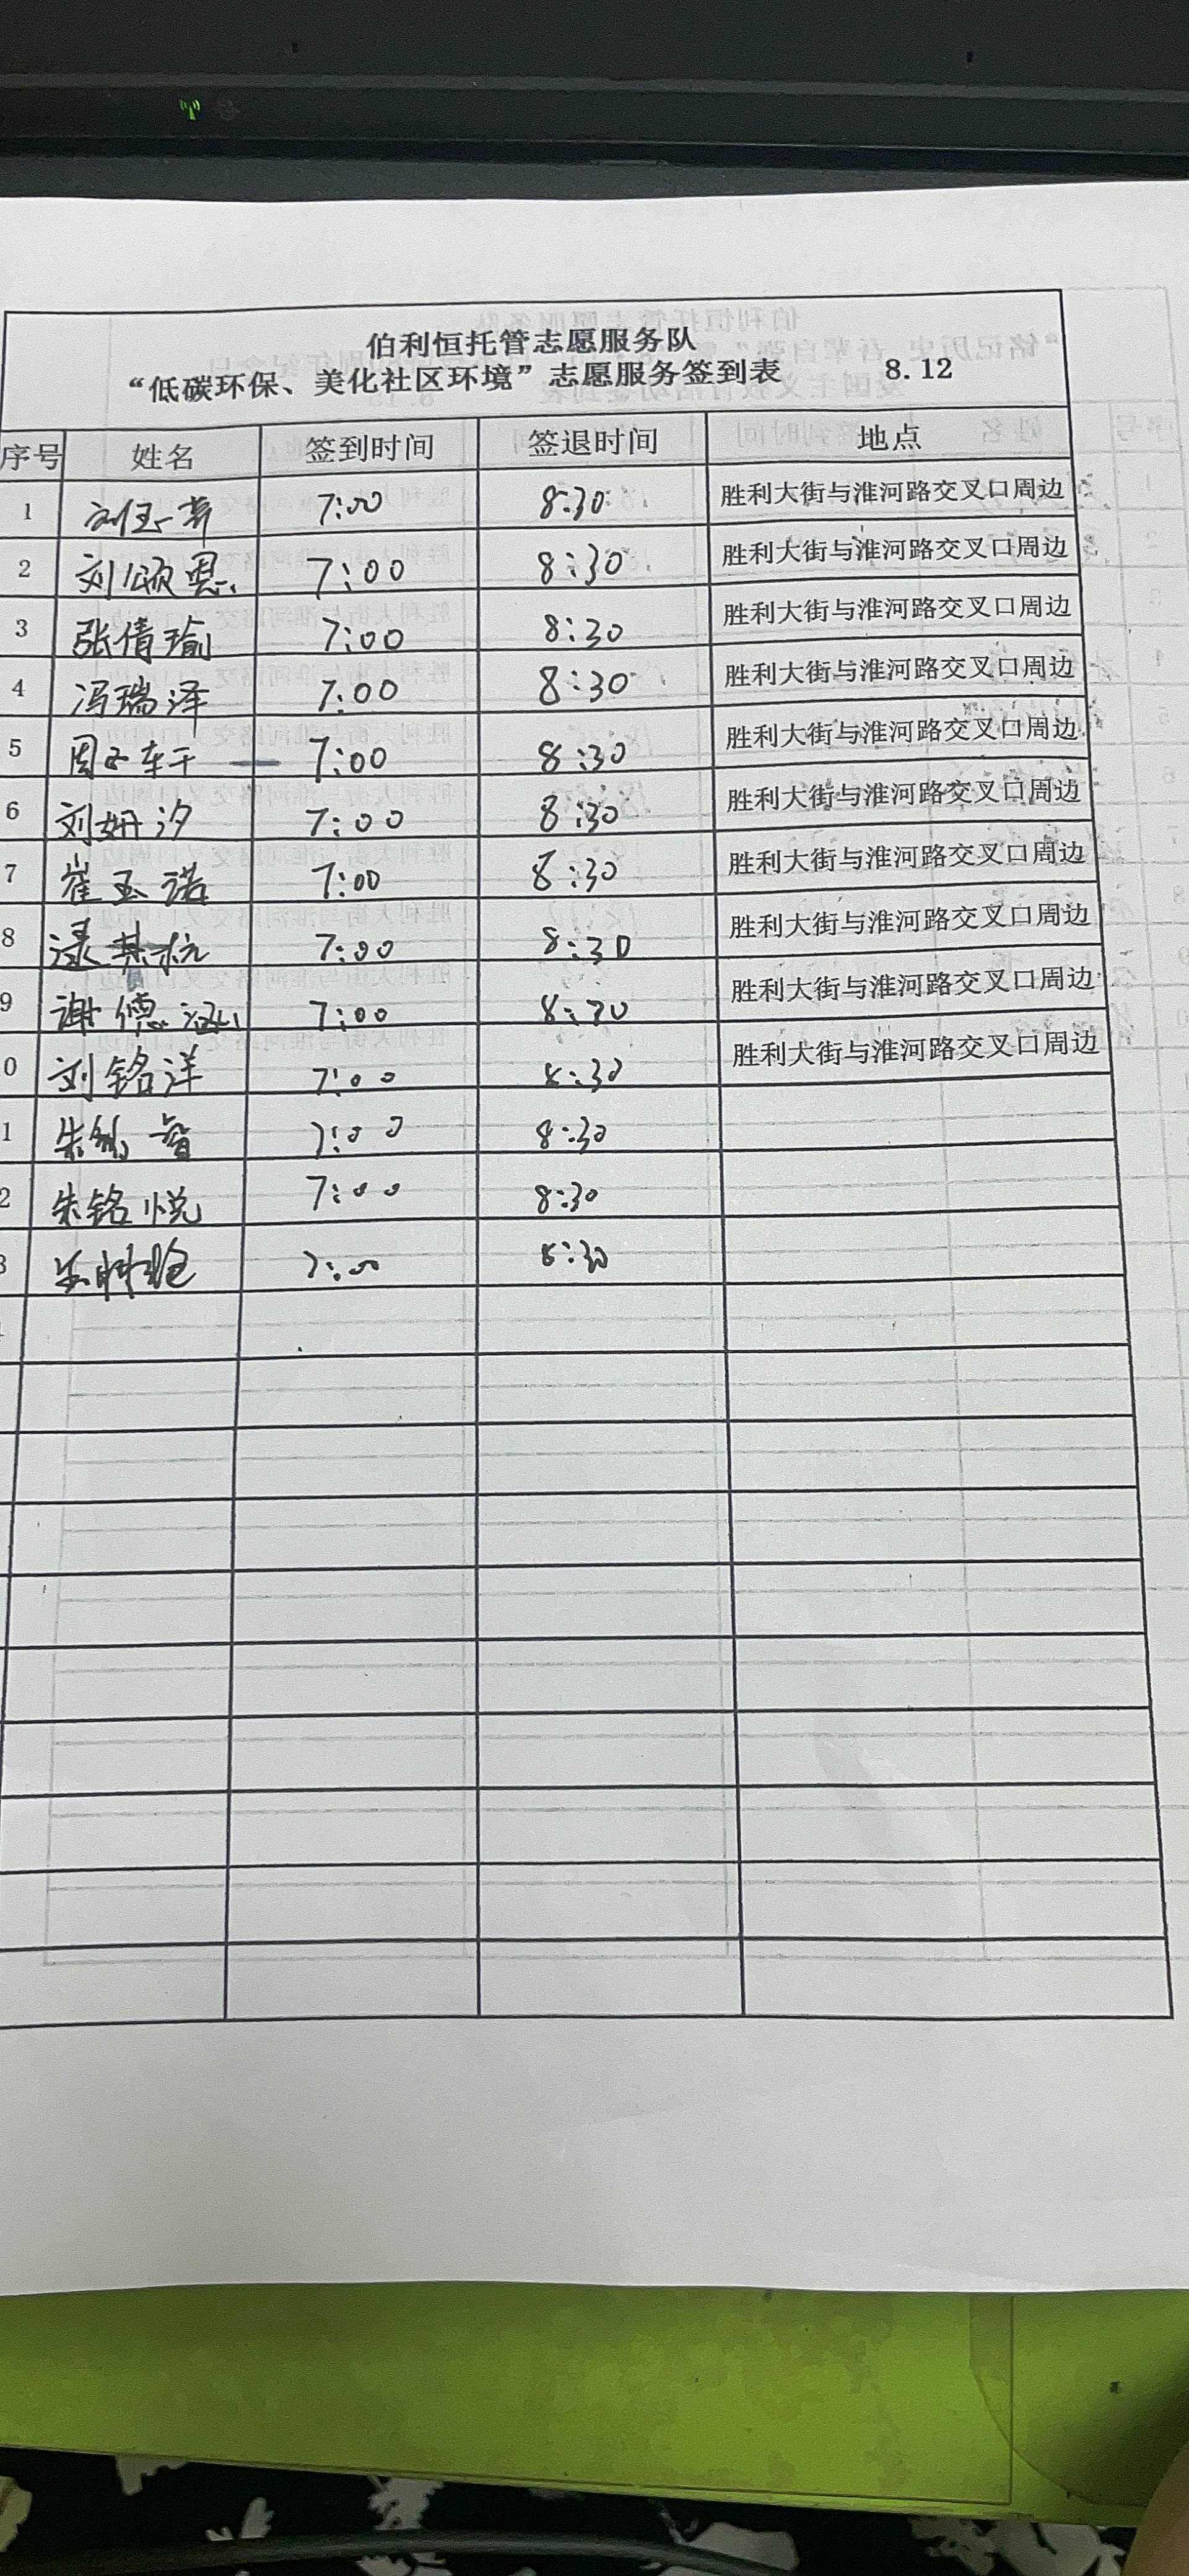 伯利恒托管志愿服务队
“低碳环保、美化社区环境”志愿服务签到表 8.12
序号 姓名 签到时间 签退时间 地点
1 刘 7:00 8:30 胜利大街与淮河路交叉口周边
2 刘颂恩 7:00 8:30 胜利大街与淮河路交叉口周边
3 张倩瑜 7:00 8:30 胜利大街与淮河路交叉口周边
4 冯瑞泽 7:00 8:30 胜利大街与淮河路交叉口周边
5 周子轩 7:00 8:30 胜利大街与淮河路交叉口周边
6 刘妍汐 7:00 8:30 胜利大街与淮河路交叉口周边
7 崔玉诺 7:00 8:30 胜利大街与淮河路交叉口周边
8 7:00 8:30 胜利大街与淮河路交叉口周边
9 谢德 7:00 8:30 胜利大街与淮河路交叉口周边
0 刘铭洋 7:00 8:30 胜利大街与淮河路交叉口周边
1 朱 7:00 8:30
2 朱铭悦 7:00 8:30
3 7:00 8:30